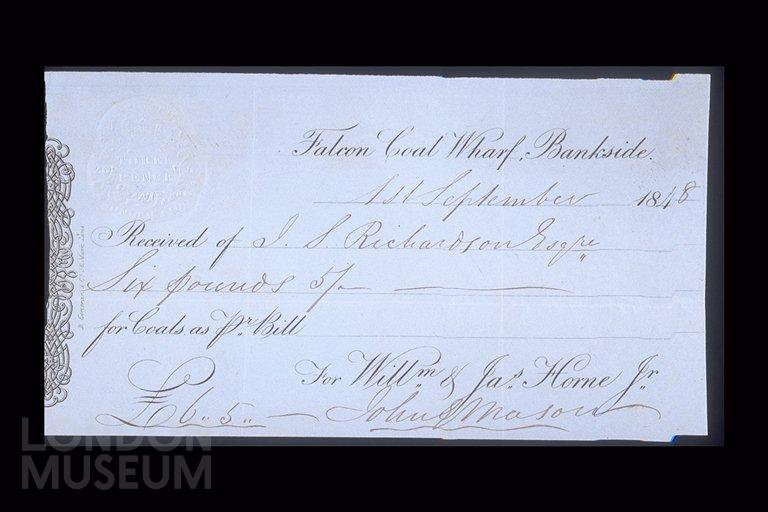 THREE
PENCE
Falcon Coal Wharf, Bankside.
1st September 1848
Received of J. S. Richardson Esqre
Six pounds 5/-
for Coals, as Pr. Bill
For Willm. & Jas. Horne Jr.
£6 .. 5 .. -
John Mason
LONDON
MUSEUM